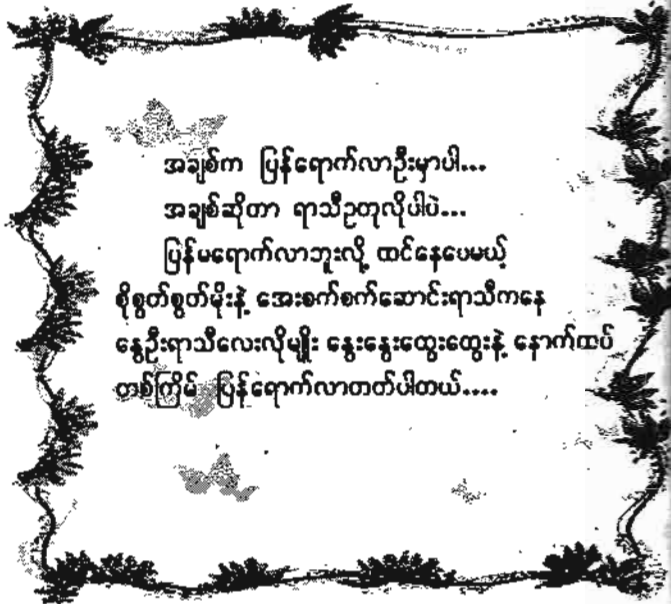 အချစ်က ပြန်ရောက်လာဦးမှာပါ...
အချစ်ဆိုတာ ရာသီဥတုလိုပါပဲ...
ပြန်မရောက်လာဘူးလို့ ထင်နေပေမယ့်
စိုစွတ်စွတ်မိုးနဲ့ အေးစက်စက်ဆောင်းရာသီကနေ
နွေဦးရာသီလေးလိုမျိုး နွေးနွေးထွေးထွေးနဲ့ နောက်ထပ်
တစ်ကြိမ် ပြန်ရောက်လာတတ်ပါတယ်....